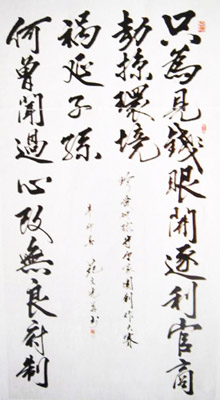 只為見錢眼開逐利官商
劫掠環境
何曾聞過心改無良府制
禍延子孫